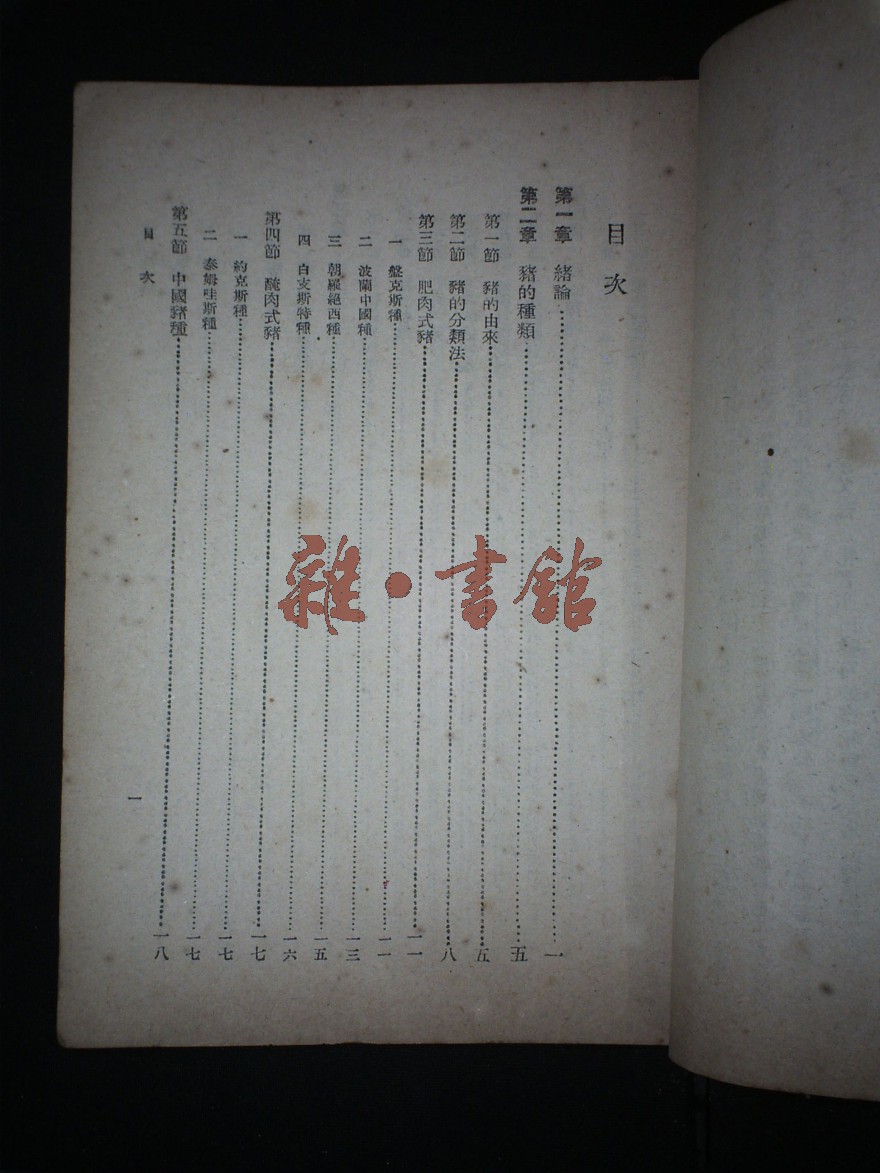 目次
第一章 緒論……一
第二章 豬的種類……五
第一節 豬的由來……五
第二節 豬的分類法……八
第三節 肥肉式豬……一一
一 盤克斯種……一一
二 波蘭中國種……一三
三 朝羅絕西種……一五
四 白支斯特種……一六
第四節 醃肉式豬……一七
一 約克斯種……一七
二 泰姆哇斯種……一七
第五節 中國豬種……一八
目次
一
雜·書館